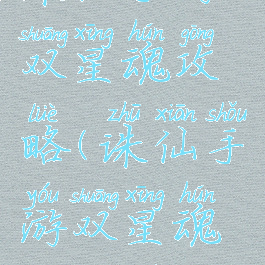 shuāng xīng hún gōng
双星魂攻
lüè zhū xiān shǒu
略(诛仙手
yóu shuāng xīng hún
游双星魂